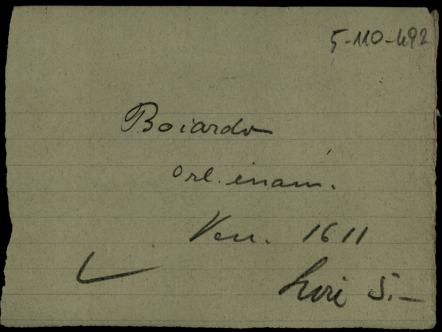 5-110-492
Boiardo
orl. inam.
Ven. 1611
Lire 5.-